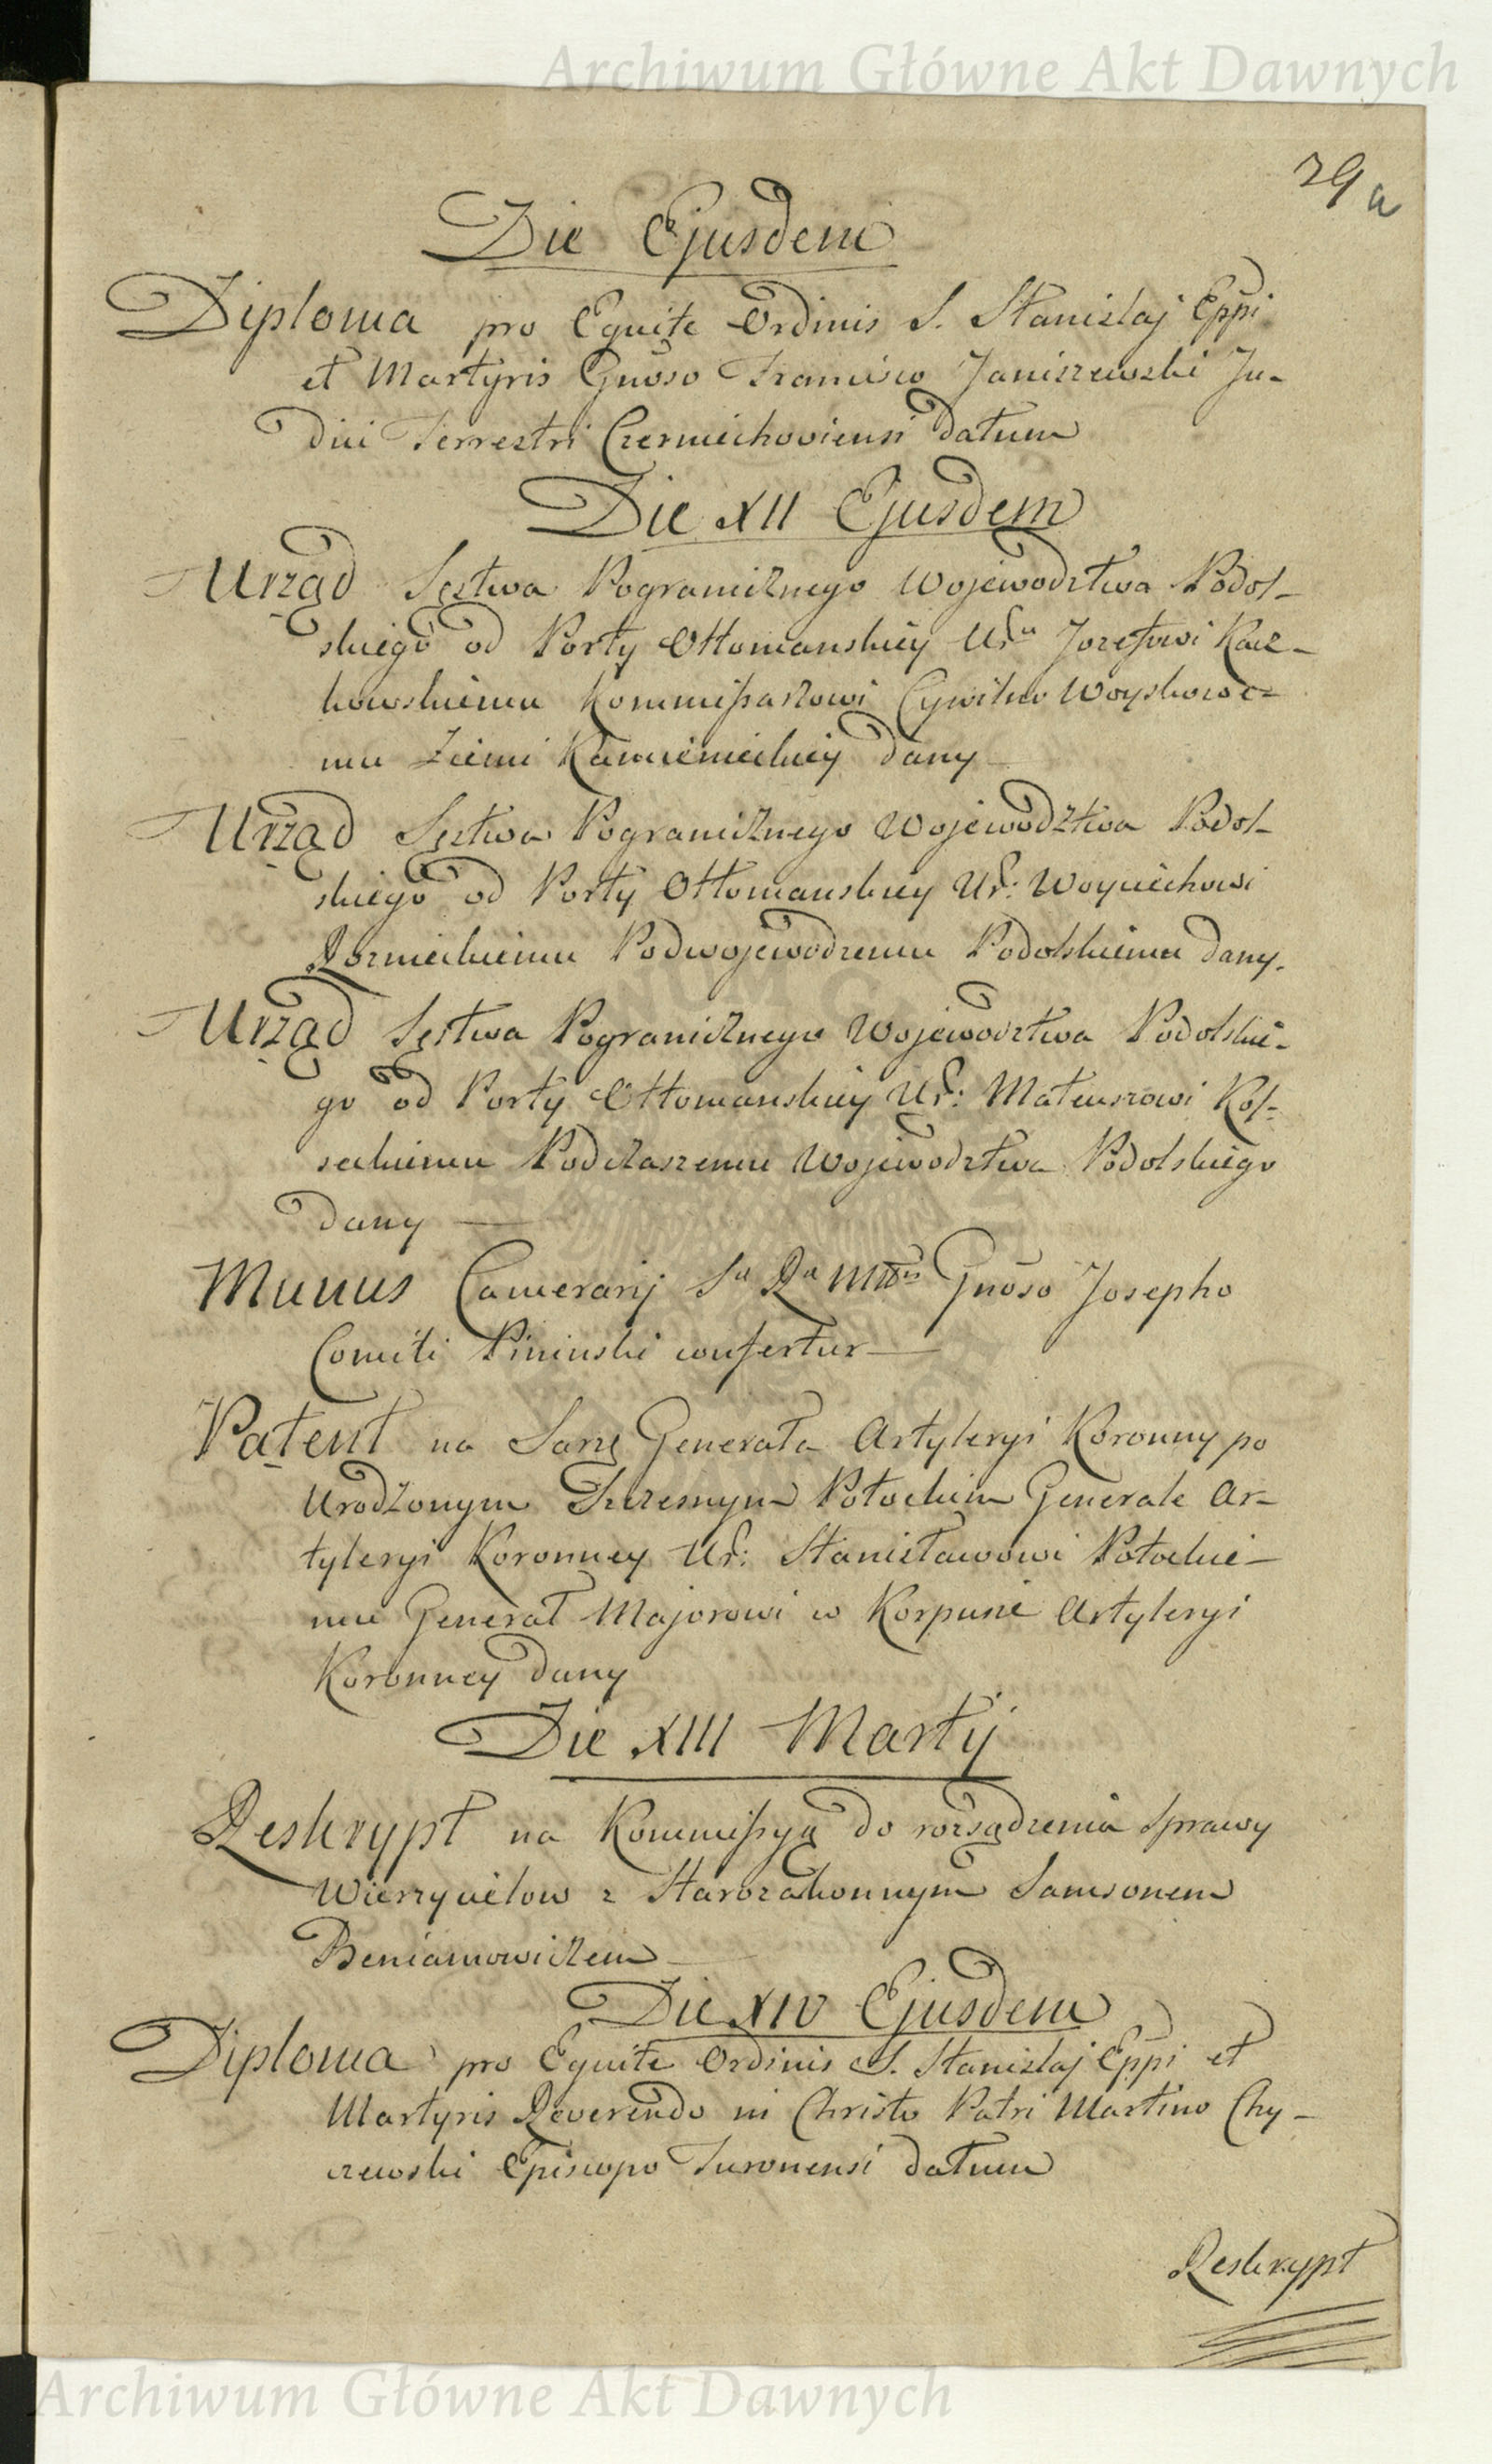 Archiwum Główne Akt Dawnych
29 a
Die Ejusdem
Diploma pro Equite Ordinis S. Stanislaj Eppi
et Martyris Gnoso Francisco Janiszewski Ju-
dici Terrestri Czerniechoviensi datum
Die XII Ejusdem
Urząd Sęstwa Pogranicznego Wojewodztwa Podol-
skiego od Porty Ottomanskiey Ur. Jozefowi Kacz-
kowskiemu Kommissarzowi Cywilno Woyskowe-
mu Ziemi Kamienieckiey dany
Urząd Sęstwa Pogranicznego Wojewodztwa Podol-
skiego od Porty Ottomanskiey Ur: Woyciechowi
Podwojewodzemu Podolskiemu dany.
Urząd Sęstwa Pogranicznego Wojewodztwa Podolskie-
go od Porty Ottomanskiey Ur: Mateuszowi Kos-
seckiemu Podczaszemu Wojewodztwa Podolskiego
dany
Munus Camerarij Sa Ra Mttis Gnoso Josepho
Comiti Pininski confertur
Patent na Sarżę Generała Artyleryi Koronny po
Urodzonym Szczesnym Potockim Generale Ar-
tyleryi Koronney Ur: Stanisławowi Potockie-
mu Generał Majorowi w Korpusie Artyleryi
Koronney dany
Die XIII Martij
Reskrypt na Kommissyą do rozsądzenia Sprawy
Wierzycielow z Starozakonnym Samsonem
Beniamowiczem
Die XIV Ejusdem
Diploma pro Equite Ordinis S. Stanislaj Eppi et
Martyris Reverendo in Christo Patri Martino Chy-
czewski Episcopo Turonensi datum
Reskrypt
Archiwum Główne Akt Dawnych